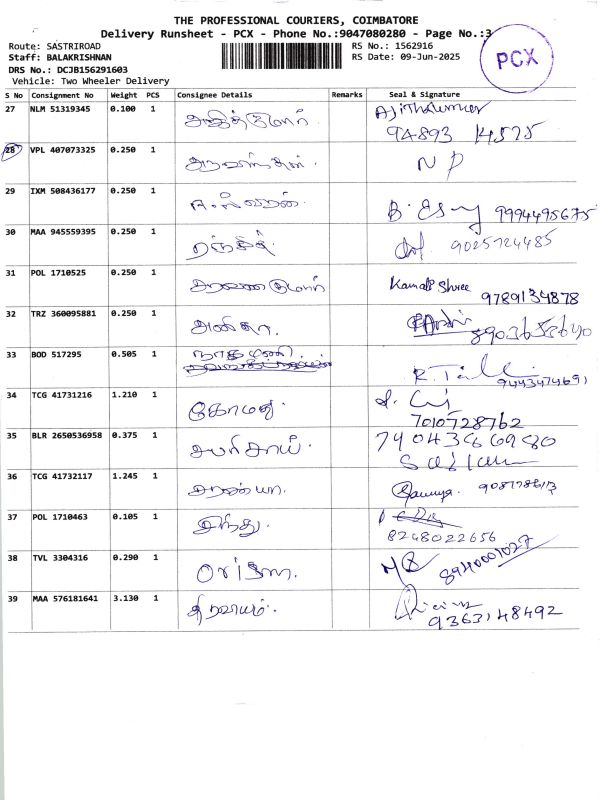 THE PROFESSIONAL COURIERS, COIMBATORE
Delivery Runsheet - PCX - Phone No.:9047080280 - Page No.:3
Route: SASTRIROAD
RS No.: 1562916
Staff: BALAKRISHNAN
RS Date: 09-Jun-2025
DRS No.: DCJB156291603
Vehicle: Two Wheeler Delivery
PCX
S No Consignment No Weight PCS Consignee Details Remarks Seal & Signature
27 NLM 51319345 0.100 1 அஜித்குமார். Ajithkumar
94893 14575
28 VPL 407073325 0.250 1 NP
29 IXM 508436177 0.250 1 9994495675
30 MAA 945559395 0.250 1 ரஞ்சித். 9025724485
31 POL 1710525 0.250 1 சரவணகுமார் Kamali Shree
9789134878
32 TRZ 360095881 0.250 1 அனிதா.
33 BOD 517295 0.505 1 நாகமணி.
9443474691
34 TCG 41731216 1.210 1 கோமதி
7010728762
35 BLR 2650536958 0.375 1 சபரிசாய்.
36 TCG 41732117 1.245 1 சரண்யா.
37 POL 1710463 0.105 1 இந்து.
8248022656
38 TVL 3304316 0.290 1 8940001027
39 MAA 576181641 3.130 1
9363148492